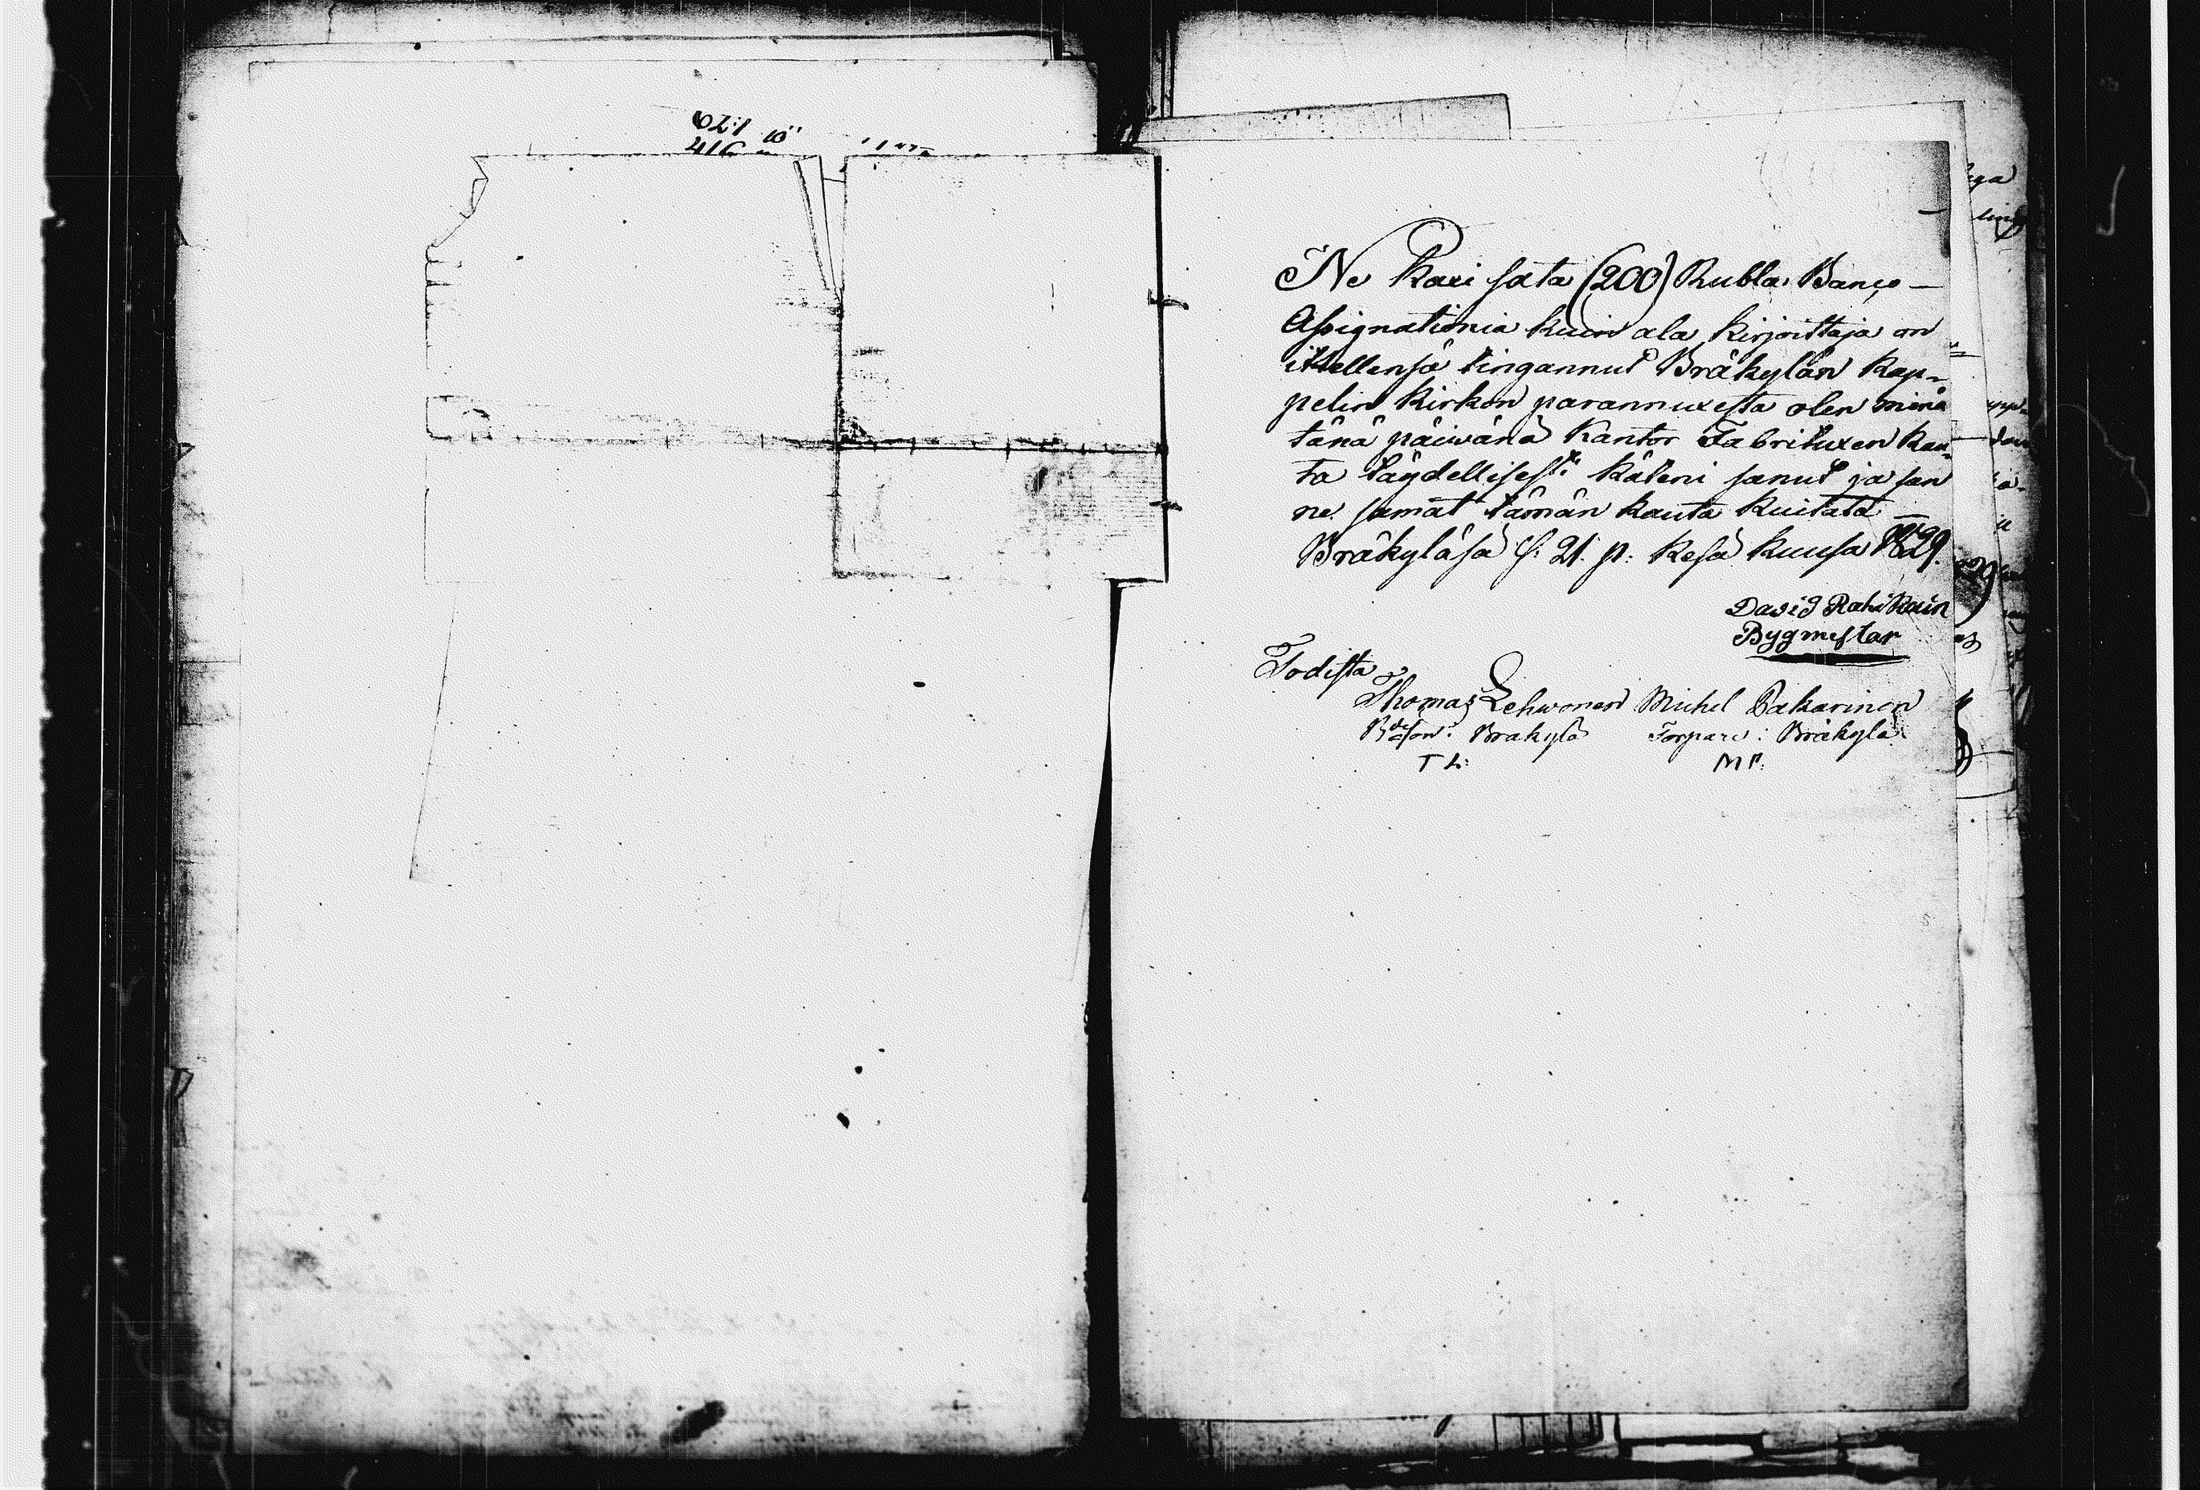 1:70
416
Ne Kaxi sata (200) Rubla Banco-
Assignationia kuin ala kirjoittaja on
ittellensä tingannut Bräkylän Kap-
pelin Kirkon parannuxesta olen minä
tänä päiwänä Kantor Fabrituxen kau-
ta täydellisesti käteni sanut ja san
ne samat tämän kauta kuitata
Bräkyläsä s: 21. p: Kesä kuusa 1829.
David Rahikain
Bygmestar
Todista
Thomas Lehwonen Michel Pakarinen
Bräkylä Torpare: Bräkylä
T L: M P: